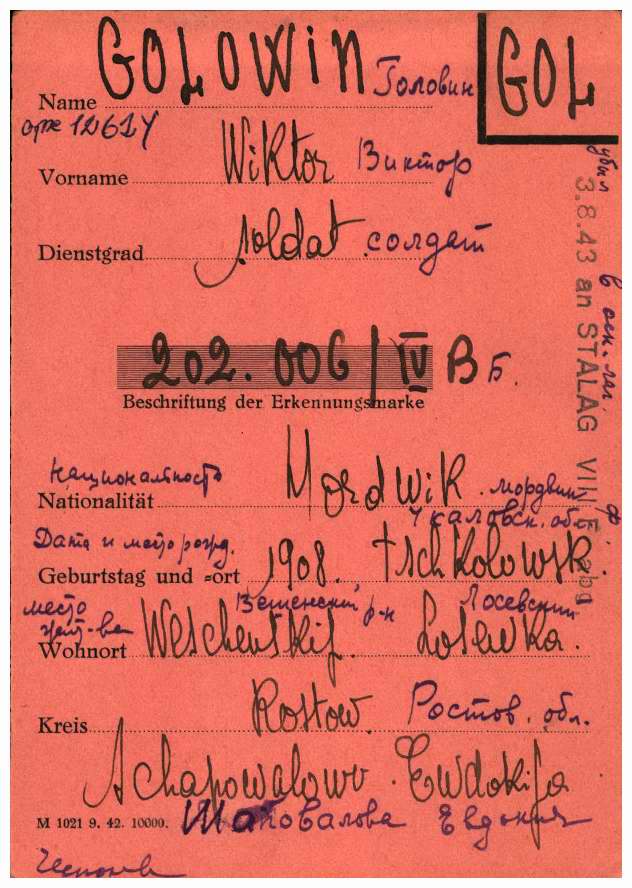 GOLOWIN Головин GOL
Name
Vorname Wiktor Виктор
Dienstgrad soldat солдат
202.006/IV B Б.
Beschriftung der Erkennungsmarke
убыл в
3.8.43 an STALAG VIII
национальность
Nationalität Mordwik. мордвин
Чкаловск. обл.
Дата и место рожд.
Geburtstag und =ort 1908. Tschkolowsk.
место Вешенский р-н Лосевский
жит-ва
Wohnort Weschenskij. Losewka.
Kreis Rostow. Ростов. обл.
Schapowalowa. Ewdokija
M 1021 9. 42. 10000. Шаповалова Евдокия